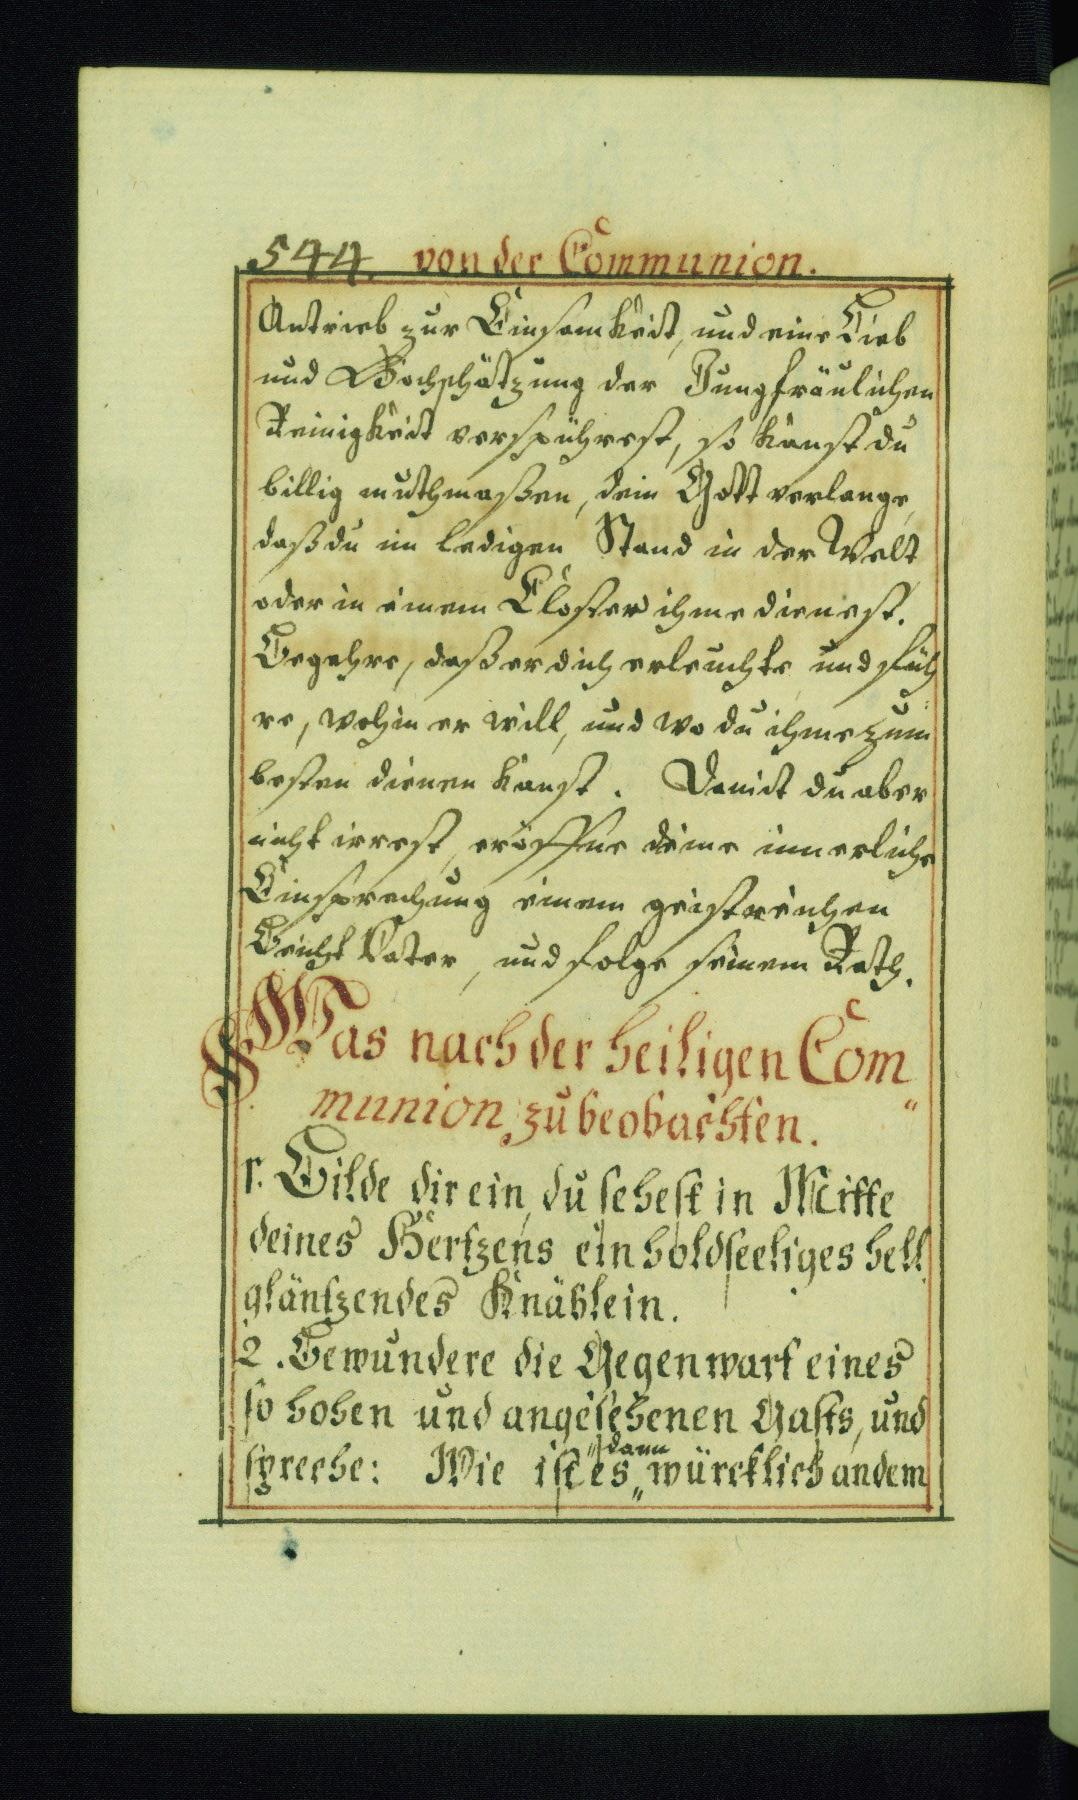 544. von der Communion.
Antrieb zur Einsamkeit, und eine Lieb
und Hochschätzung der Jungfräulichen
Reinigkeit verspührest, so kanst du
billig muthmaßen, dein Gott verlange,
daß du im ledigen Stand in der Welt
oder in einem Closter ihme dienest.
Begehre, daß er dich erleuchte und füh
re, wohin er will, und wo du ihme zum
besten dienen kanst. Damit du aber
nicht irrest, eröffne deine innerliche
Einsprechung einem geistreichen
Beicht Vater, und folge seinem Rath.
Was nach der heiligen Com
munion zu beobachten.
1. Bilde dir ein, du sehest in Mitte
deines Hertzens ein holdseeliges hell
gläntzendes Knäblein.
2. Bewundere die Gegenwart eines
so hohen und angesehenen Gasts, und
spreche: Wie ist es dann würcklich an dem